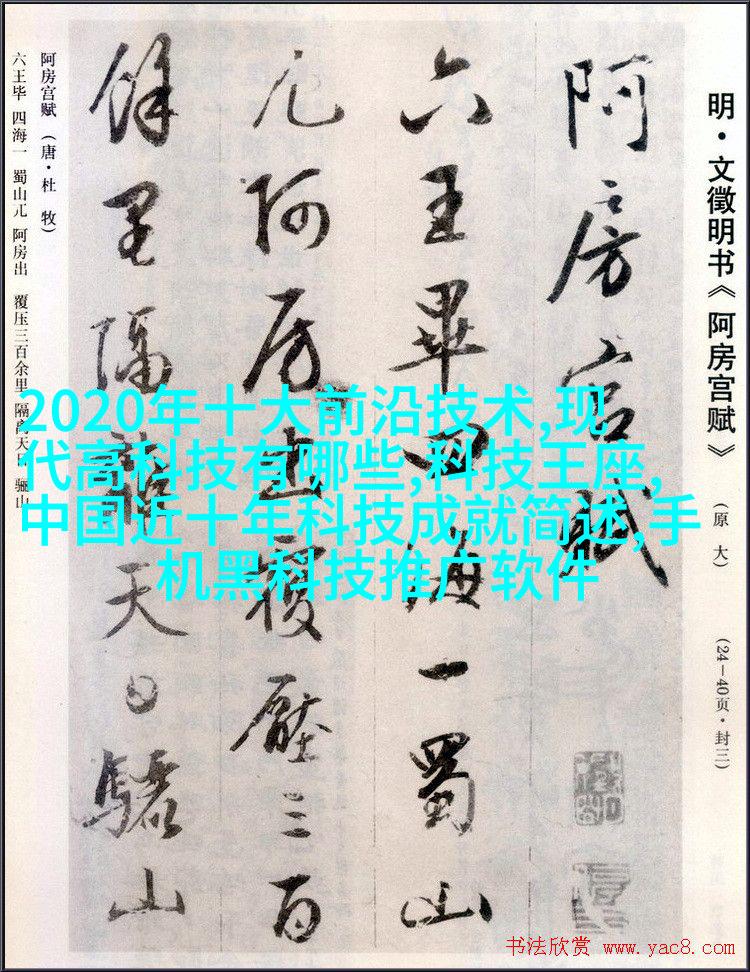 明·文徵明书《阿房宫赋》 (原大) (24—40页·封三)
阿房宫赋
六王畢四海一蜀山
兀阿房出覆壓三百
餘里隔離天日驪山
阿房宫赋 (唐·杜牧)
六王毕 四海一 蜀山兀 阿房出 覆压三百余里 隔离天日 骊山
2020年十大前沿技术,现
代高科技有哪些,科技王座,
中国近十年科技成就简述,手
机黑科技推广软件
书法欣赏 www.yac8.com